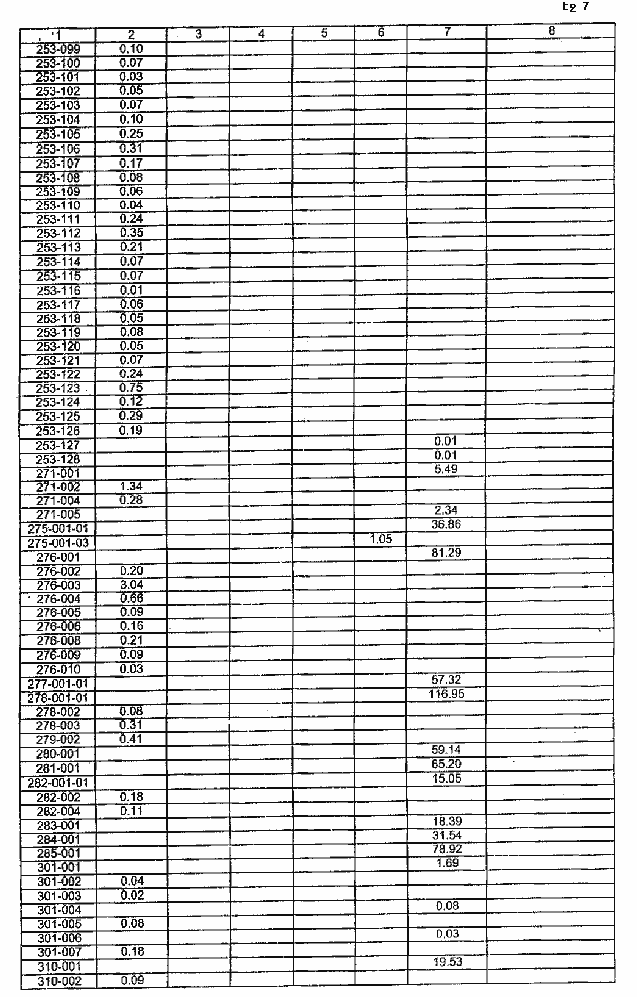 Eg 7
1 2 3 4 5 6 7 8
253-099 0.10
253-100 0.07
253-101 0.03
253-102 0.05
253-103 0.07
253-104 0.10
253-105 0.25
253-106 0.31
253-107 0.17
253-108 0.08
253-109 0.06
253-110 0.04
253-111 0.24
253-112 0.35
253-113 0.21
253-114 0.07
253-115 0.07
253-116 0.01
253-117 0.06
253-118 0.05
253-119 0.08
253-120 0.05
253-121 0.07
253-122 0.24
253-123 0.75
253-124 0.12
253-125 0.29
253-126 0.19
253-127 0.01
253-128 0.01
271-001 5.49
271-002 1.34
271-004 0.28
271-005 2.34
275-001-01 36.86
275-001-03 1.05
276-001 81.29
276-002 0.20
276-003 3.04
276-004 0.66
276-005 0.09
276-006 0.16
276-008 0.21
276-009 0.09
276-010 0.03
277-001-01 57.32
278-001-01 116.95
278-002 0.08
278-003 0.31
279-002 0.41
280-001 59.14
281-001 65.20
282-001-01 15.05
282-002 0.18
282-004 0.11
283-001 18.39
284-001 31.54
285-001 78.92
301-001 1.69
301-002 0.04
301-003 0.02
301-004 0.08
301-005 0.08
301-006 0.03
301-007 0.18
310-001 19.53
310-002 0.09